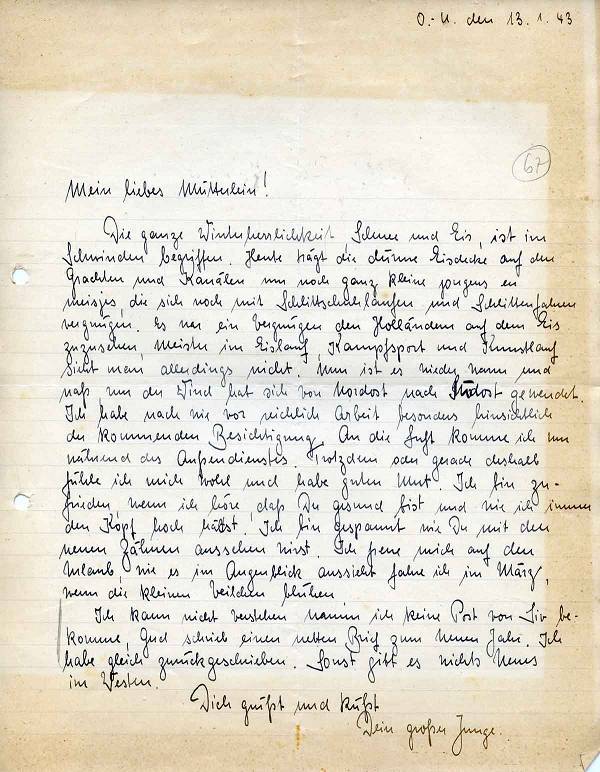 O.-U. den 13.1.43
67
Mein liebes Mütterlein!
Die ganze Winterherrlichkeit, Schnee und Eis, ist im
Schwinden begriffen. Heute trägt die dünne Eisdecke auf den
Grachten und Kanälen nur noch ganz kleine jongens en
meisjes, die sich noch mit Schlittschuhlaufen und Schlittenfahren
vergnügen. Es war ein Vergnügen den Holländern auf dem Eis
zuzusehen, Meister im Eislauf, Kampfsport und Kunstlauf
sieht man allerdings nicht. Nun ist es wieder warm und
naß nur der Wind hat sich von Nordost nach Südost gewendet.
Ich habe nach wie vor reichlich Arbeit besonders hinsichtlich
der kommenden Besichtigung. An die Luft komme ich nur
während des Außendienstes. Trotzdem oder gerade deshalb
fühle ich mich wohl und habe guten Mut. Ich bin zu-
frieden, wenn ich höre, daß Du gesund bist und wie ich immer
den Kopf hoch hälst. Ich bin gespannt wie Du mit den
neuen Zähnen aussehen wirst. Ich freue mich auf den
Urlaub, wie es im Augenblick aussieht fahre ich im März,
wenn die kleinen Veilchen blühen.
Ich kann nicht verstehen warum ich keine Post von Siv be-
komme, Gud schrieb einen netten Brief zum Neuen Jahr. Ich
habe gleich zurückgeschrieben. Sonst gibt es nichts Neues
im Westen.
Dich grüßt und küßt
Dein großer Junge.